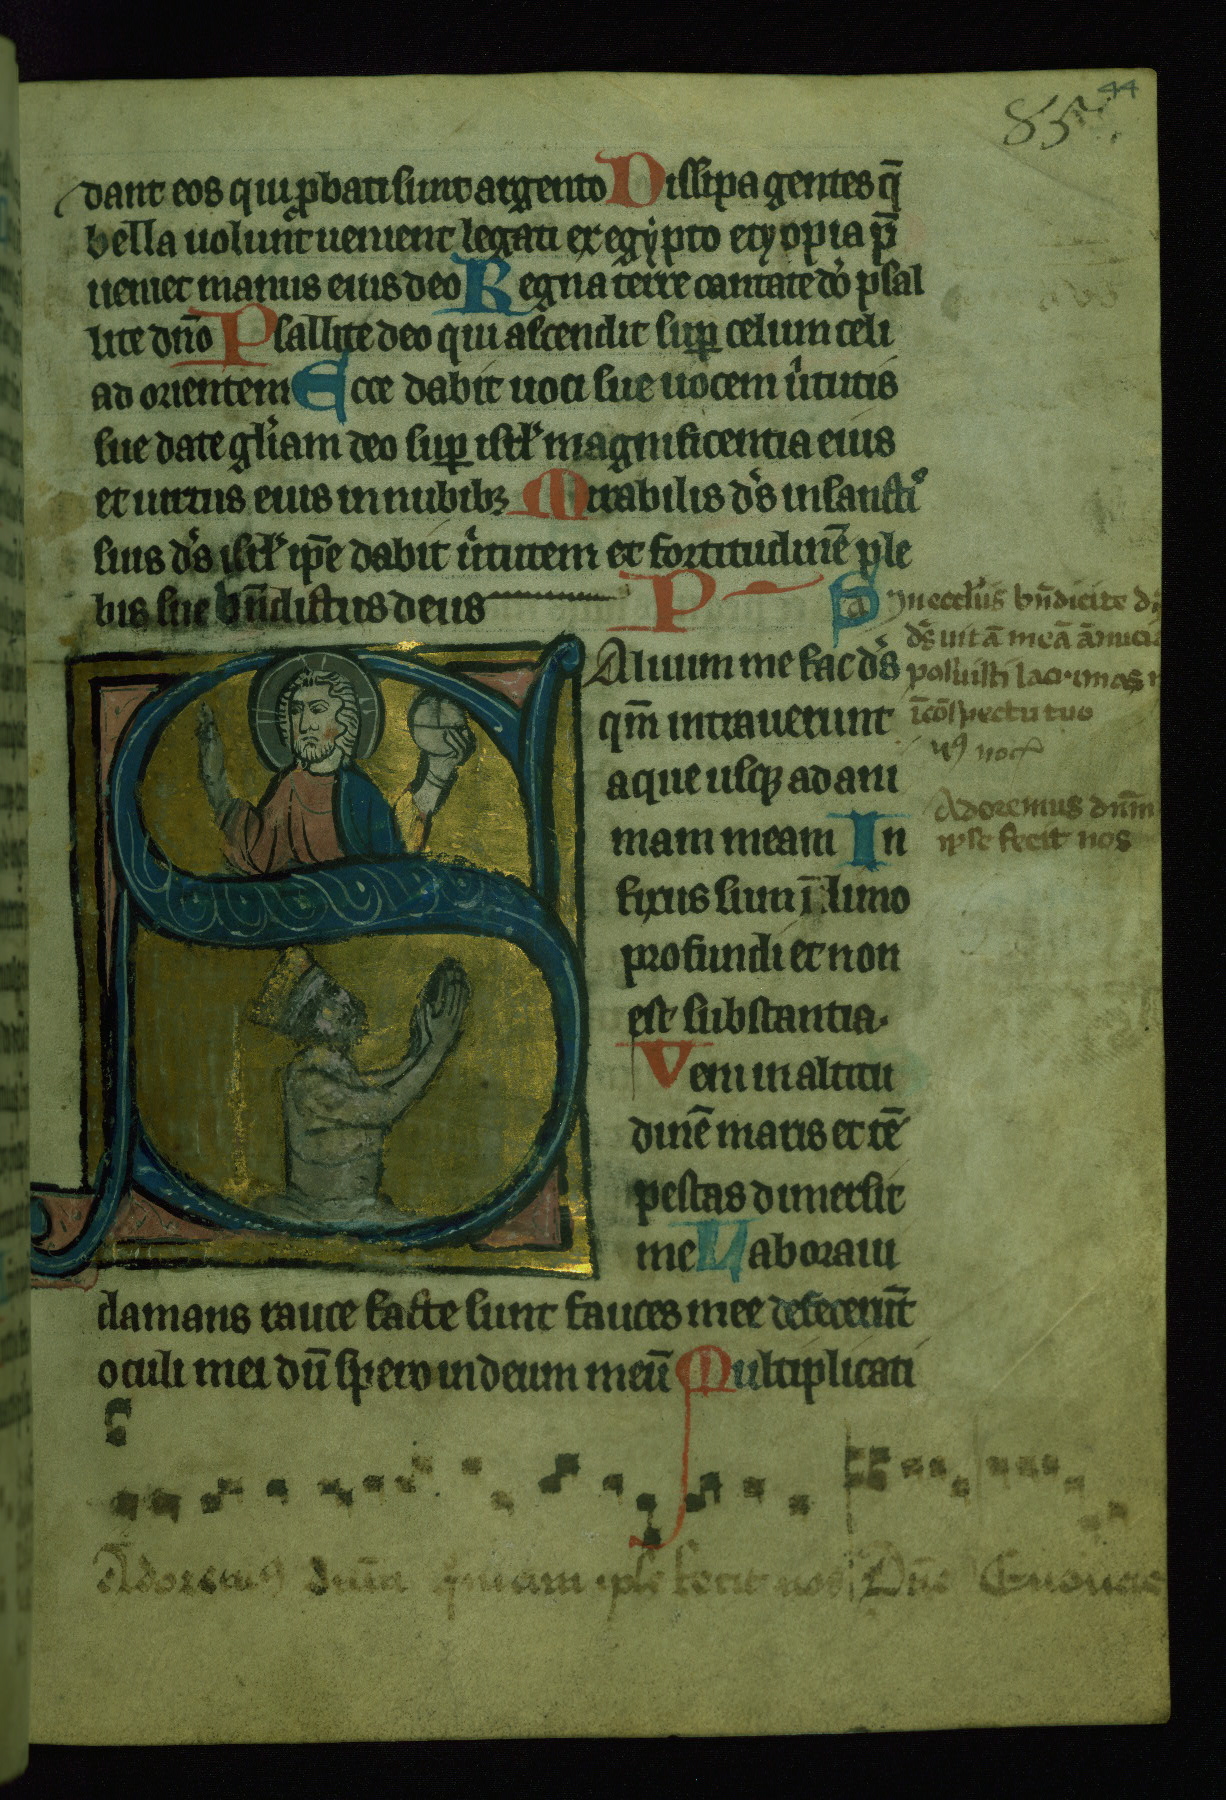 44
85
dant eos qui ꝓbati sunt argento Dissipa gentes q̄
bella uolunt uenient legati ex egypto etyopia p̄
ueniet manus eius deo Regna terre cantate dō psal
lite dn̄o Psallite deo qui ascendit suꝑ celum celi
ad orientem Ecce dabit uoci sue uocem u̍tutis
sue date gl̍iam deo suꝑ isrl̍ magnificentia eius
et uirtus eius in nubibꝫ Mirabilis d̍s in sancti᷒
suis d̍s isrl̍ ip̄e dabit u̍tutem et fortitudinē ple
bis sue bn̄dictus deus P
Saluum me fac d̍s
qm̄ intrauerunt
aque usqꝫ ad ani
mam meam In
fixus sum ī limo
profundi et non
est substantia.
Veni in altitu
dinē maris et tē
pestas dimersit
me Laboraui
clamans rauce facte sunt fauces mee defecerūt
oculi mei dū spero in deum meū Multiplicati
In eccl̍iis bn̄dicite
d̍s uitā meā ānūcia
posuisti lacrimas
ī cōspectu tuo
Adoremus dn̄m
ipse fecit nos
Adoremꝰ dn̄m quoniam ipse fecit nos Dn̄e Euouae